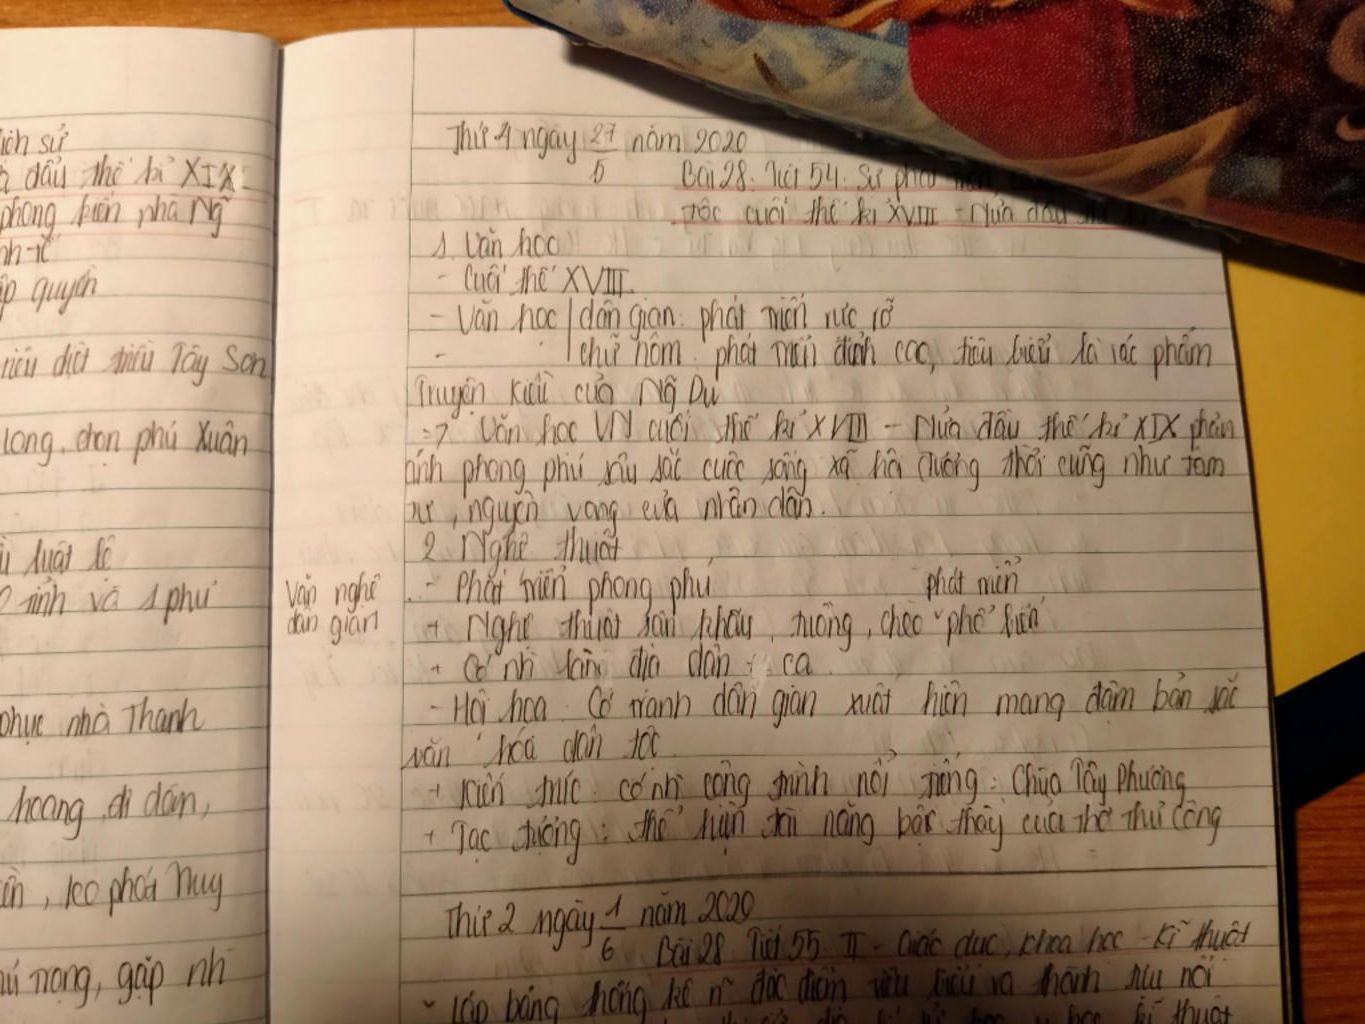 ịch sử
đầu thế kỉ XIX
phong kiến nhà Ng~
p quyền
tiêu diệt triều Tây Sơn
Long, chọn phú Xuân
luật lệ
tỉnh và 1 phủ
phục nhà Thanh
hoang, di dân,
phát huy
trọng, gặp nh~
Thứ 4 ngày 27/5 năm 2020
Bài 28. Tiết 54. Sự phát
tộc cuối thế kỉ XVIII - Nửa đầu
1. Văn học
- Cuối thế XVIII
- Văn học | dân gian: phát triển rực rỡ
- | chữ nôm: phát triển đỉnh cao, tiêu biểu là tác phẩm
Truyện Kiều của Ng~ Du
=> Văn học VN cuối thế kỉ XVIII - Nửa đầu thế kỉ XIX phản
ánh phong phú sâu sắc cuộc sống xã hội đương thời cũng như tâm
tư, nguyện vọng của nhân dân.
2. Nghệ thuật
Văn nghệ
dân gian
- Phát triển phong phú
phát triển
+ Nghệ thuật sân khấu, tuồng, chèo phổ biến
+ Có nh~ làn địa dân ca
- Hội họa: Có tranh dân gian xuất hiện mang đậm bản sắc
văn hóa dân tộc
+ Kiến trúc: có nh~ công trình nổi tiếng: Chùa Tây Phương
+ Tạc tượng: thể hiện tài năng bậc thầy của thợ thủ công
Thứ 2 ngày 1/6 năm 2020
Bài 28. Tiết 55. II - Giáo dục, khoa học - Kĩ thuật
Lập bảng thống kê n~ đặc điểm tiêu biểu và thành tựu nổi
học kĩ thuật